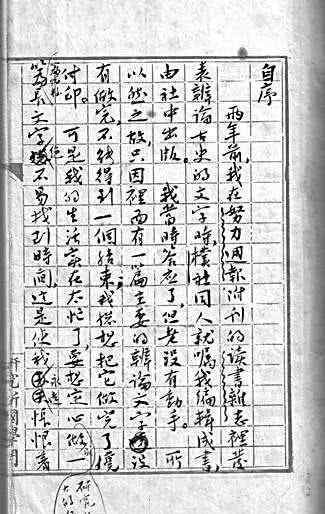 自序
兩年前，我在努力週報附刊的讀書雜志裡發
表辨論古史的文字時，樸社同人就囑我編輯成書，
由社中出版。我當時答應了，但老沒有動手。所
以然之故，只因裡面有一篇主要的辨論文字沒
有做完，不能得到一個結束；我總想把它做完了纔
付印。可是我的生活實在太忙了，要想定心做一
文字，不易找到時間，這是使我永遠悵恨着